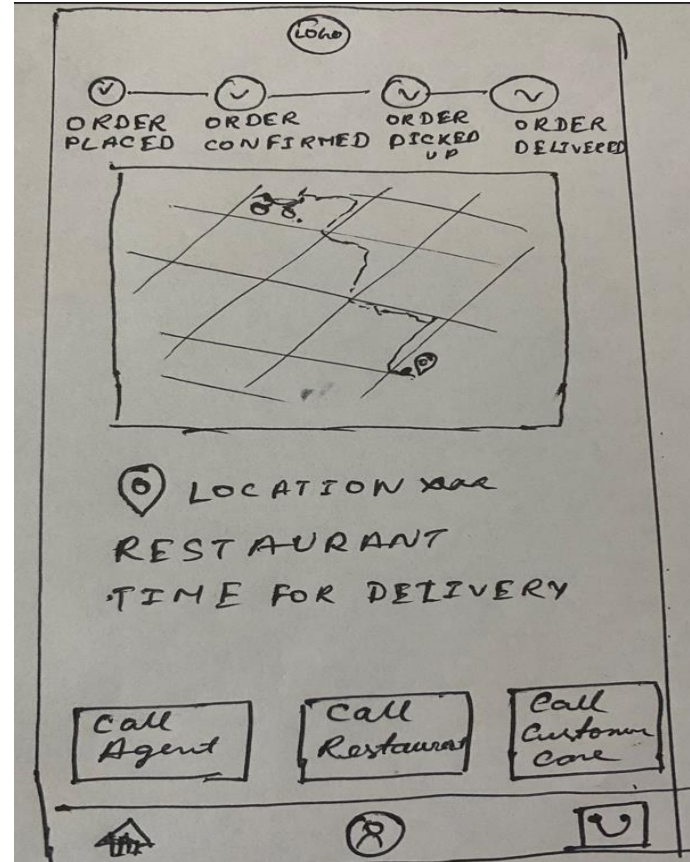 LOGO
ORDER PLACED
ORDER CONFIRMED
ORDER PICKED UP
ORDER DELIVERED
LOCATION
RESTAURANT
TIME FOR DELIVERY
Call Agent
Call Restaurant
Call Customer Care